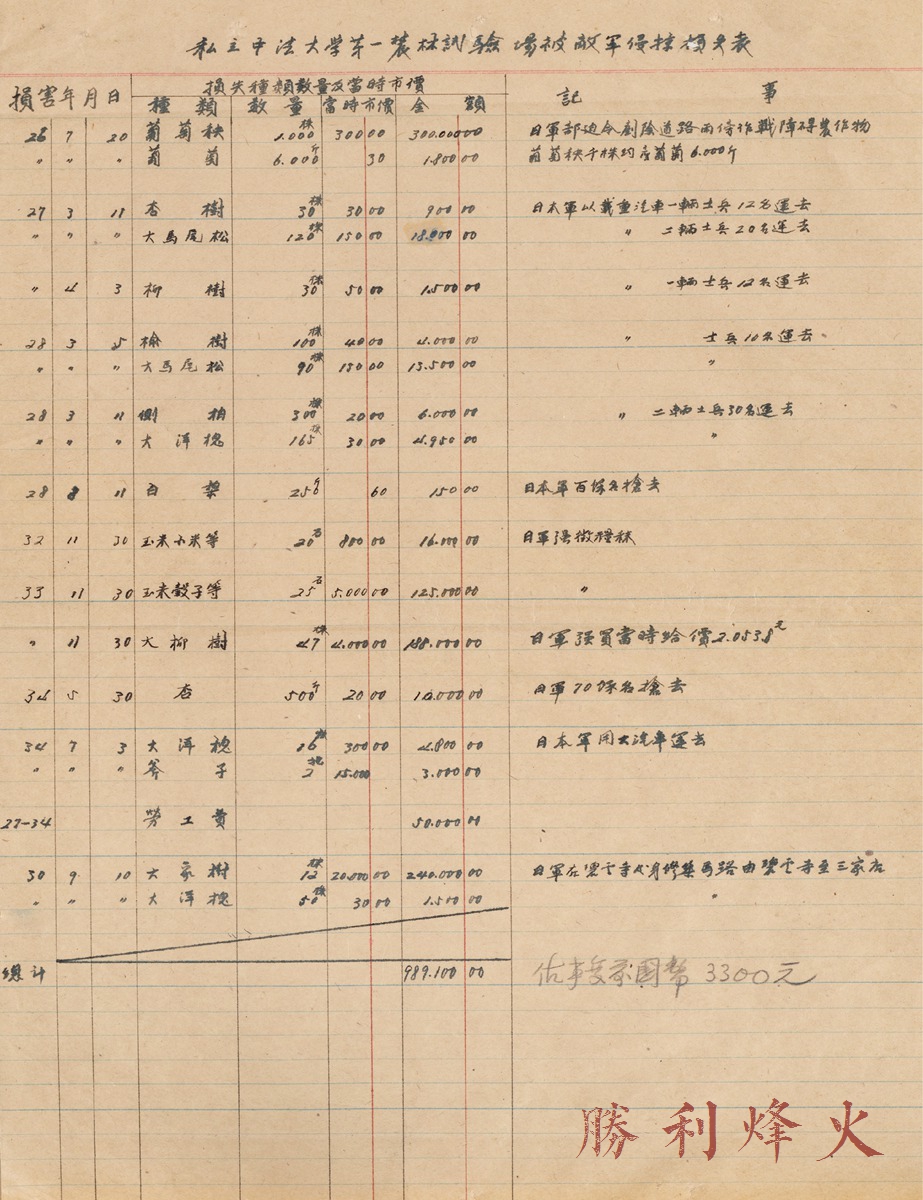 私立中法大学第一農林試驗場被敵軍侵掠損失表
損害年月日 損失種類數量及當時市價 記事
種類 數量 當時市價 金額
26 7 20 葡萄秧 1.000株 300 00 300.000 00 日軍部迫令剷除道路兩侍作戰障碍農作物
〃 〃 〃 葡萄 6.000斤 30 1.800 00 葡萄秧千株約產葡萄6.000斤
27 3 11 杏樹 30株 30 00 900 00 日本軍以載重汽車一輛士兵12名運去
〃 〃 〃 大馬尾松 120株 150 00 18.000 00 〃 二輛士兵20名運去
〃 4 3 柳樹 30株 50 00 1.500 00 〃 一輛士兵12名運去
28 3 5 榆樹 100株 40 00 4.000 00 〃 士兵10名運去
〃 〃 〃 大馬尾松 90株 150 00 13.500 00 〃
28 3 11 側柏 300株 20 00 6.000 00 〃 二輛士兵30名運去
〃 〃 〃 大洋槐 165株 30 00 4.950 00 〃
28 8 11 白梨 250斤 60 150 00 日本軍百餘名搶去
32 11 30 玉米小米等 20石 800 00 16.000 00 日軍强徵
33 11 30 玉米穀子等 25石 5.000 00 125.000 00 〃
〃 11 30 大柳樹 47株 4.000 00 188.000 00 日軍强買當時給價2.0538元
34 5 30 杏 500斤 20 00 10.000 00 日軍70餘名搶去
34 7 3 大洋槐 16株 300 00 4.800 00 日本軍用大汽車運去
〃 〃 〃 斧子 2把 15.000 3.000 00
27-34 勞工費 50.000 00
30 9 10 大家樹 12株 20.000 00 240.000 00 日軍在碧雲寺修築馬路由碧雲寺至三家店
〃 〃 〃 大洋槐 50株 30 00 1.500 00 〃
總计 989.100 00 估事變前國幣3300元
勝利烽火